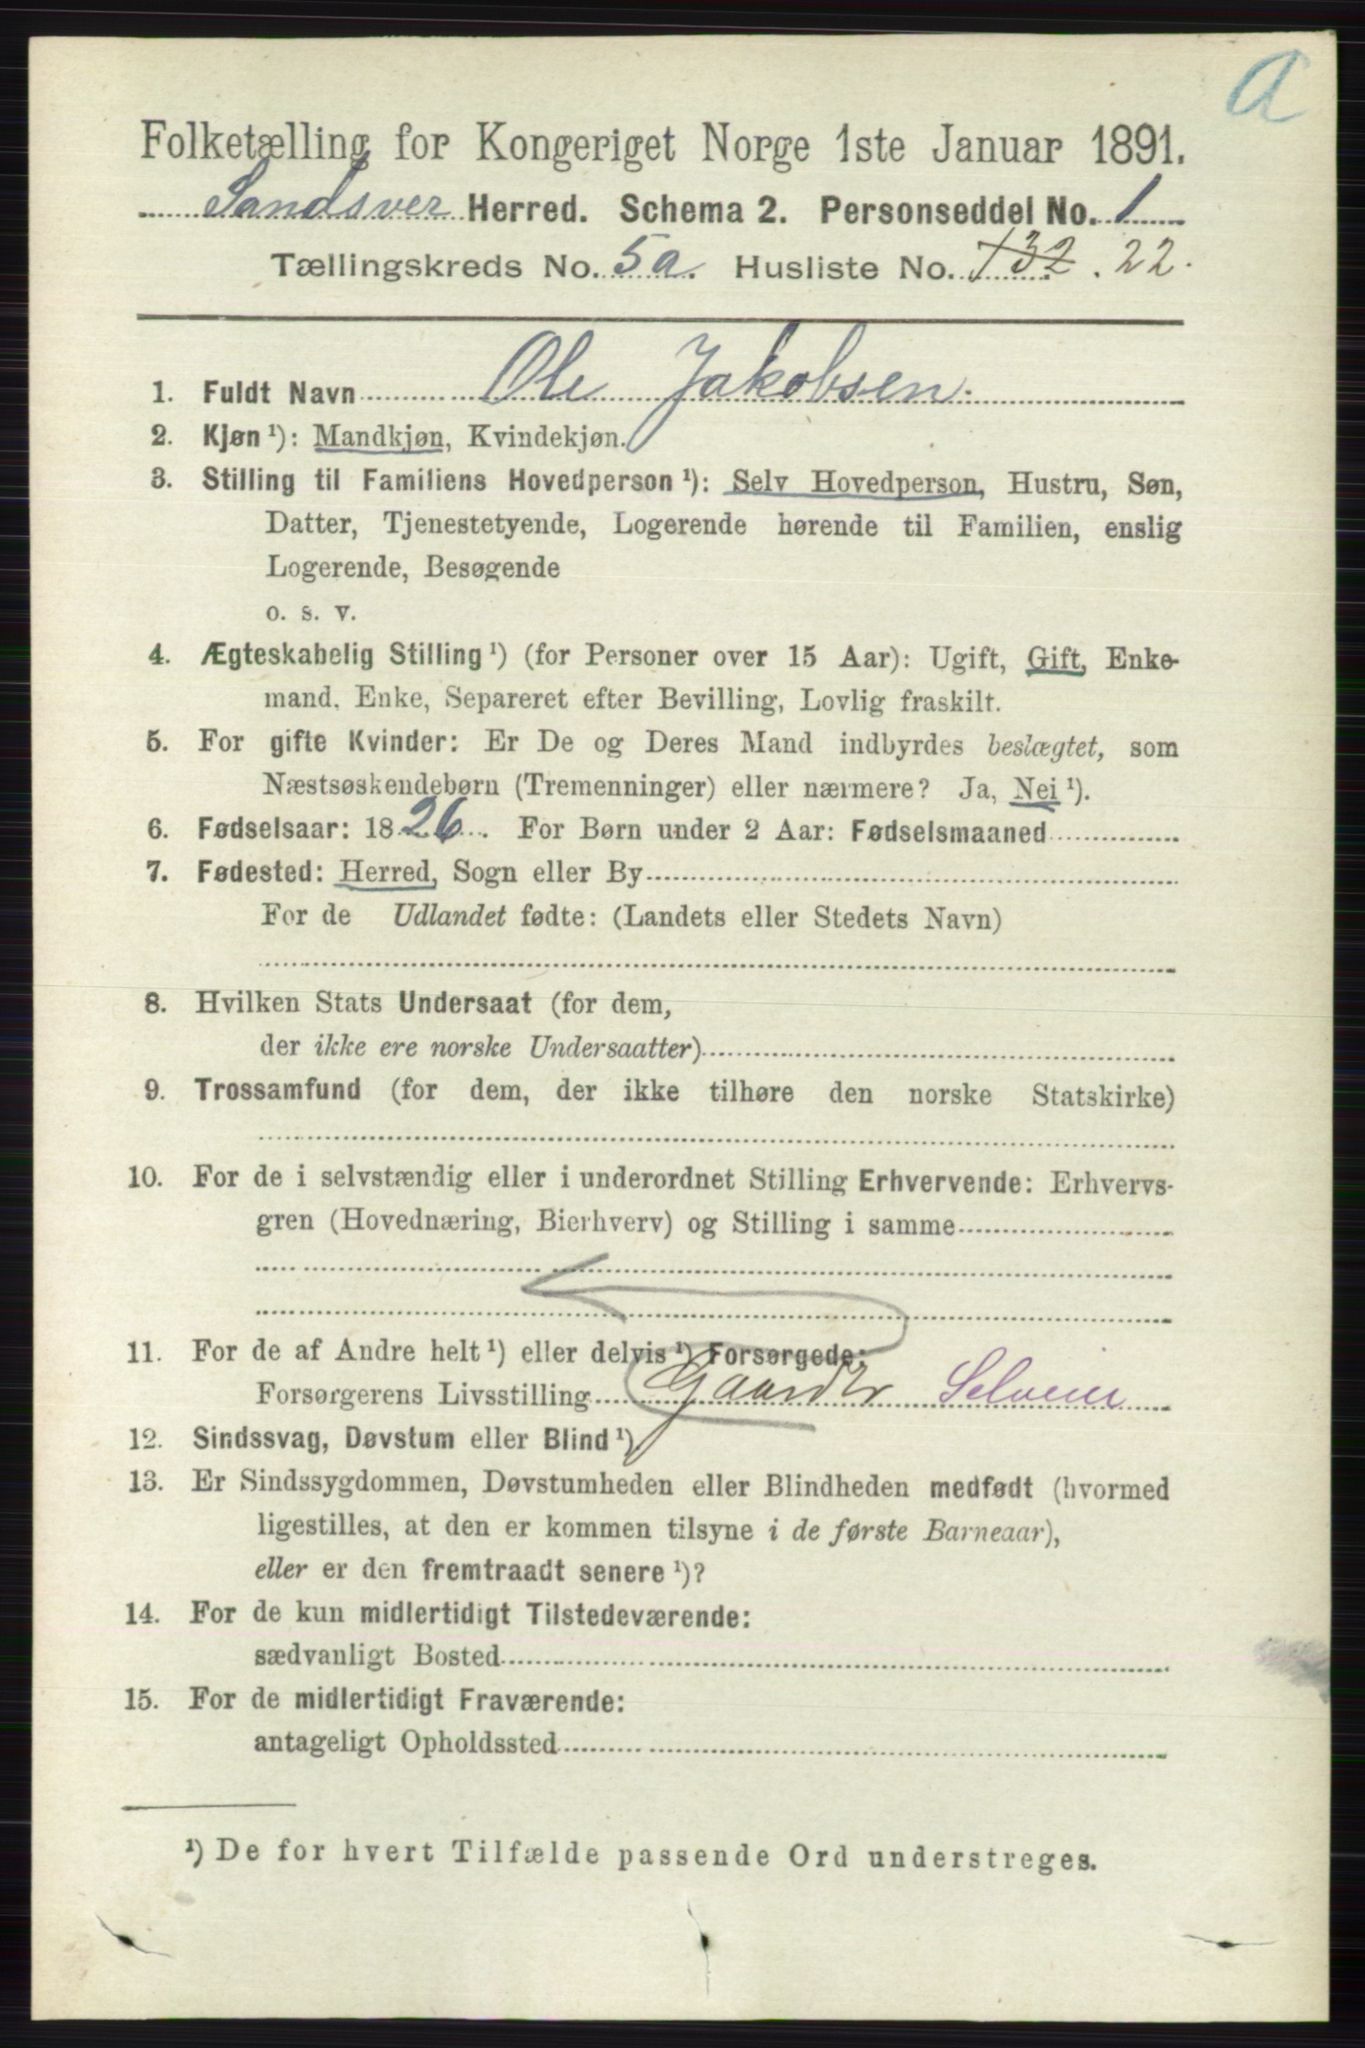 A
Folketælling for Kongeriget Norge 1ste Januar 1891.
Sandsver Herred. Schema 2. Personseddel No. 1
Tællingskreds No. 5a. Husliste No. 132. 22.
1. Fuldt Navn Ole Jakobsen.
2. Kjøn ¹): Mandkjøn, Kvindekjøn.
3. Stilling til Familiens Hovedperson ¹): Selv Hovedperson, Hustru, Søn,
Datter, Tjenestetyende, Logerende hørende til Familien, enslig
Logerende, Besøgende
o. s. v.
4. Ægteskabelig Stilling ¹) (for Personer over 15 Aar): Ugift, Gift, Enke-
mand, Enke, Separeret efter Bevilling, Lovlig fraskilt.
5. For gifte Kvinder: Er De og Deres Mand indbyrdes beslægtet, som
Næstsøskendebørn (Tremenninger) eller nærmere? Ja, Nei ¹).
6. Fødselsaar: 1826. For Børn under 2 Aar: Fødselsmaaned
7. Fødested: Herred, Sogn eller By
For de Udlandet fødte: (Landets eller Stedets Navn)
8. Hvilken Stats Undersaat (for dem,
der ikke ere norske Undersaatter)
9. Trossamfund (for dem, der ikke tilhøre den norske Statskirke)
10. For de i selvstændig eller i underordnet Stilling Erhvervende: Erhvervs-
gren (Hovednæring, Bierhverv) og Stilling i samme
11. For de af Andre helt ¹) eller delvis ¹) Forsørgede:
Forsørgerens Livsstilling Gaardbr Selveier
12. Sindssvag, Døvstum eller Blind ¹)
13. Er Sindssygdommen, Døvstumheden eller Blindheden medfødt (hvormed
ligestilles, at den er kommen tilsyne i de første Barneaar),
eller er den fremtraadt senere ¹)?
14. For de kun midlertidigt Tilstedeværende:
sædvanligt Bosted
15. For de midlertidigt Fraværende:
antageligt Opholdssted
¹) De for hvert Tilfælde passende Ord understreges.